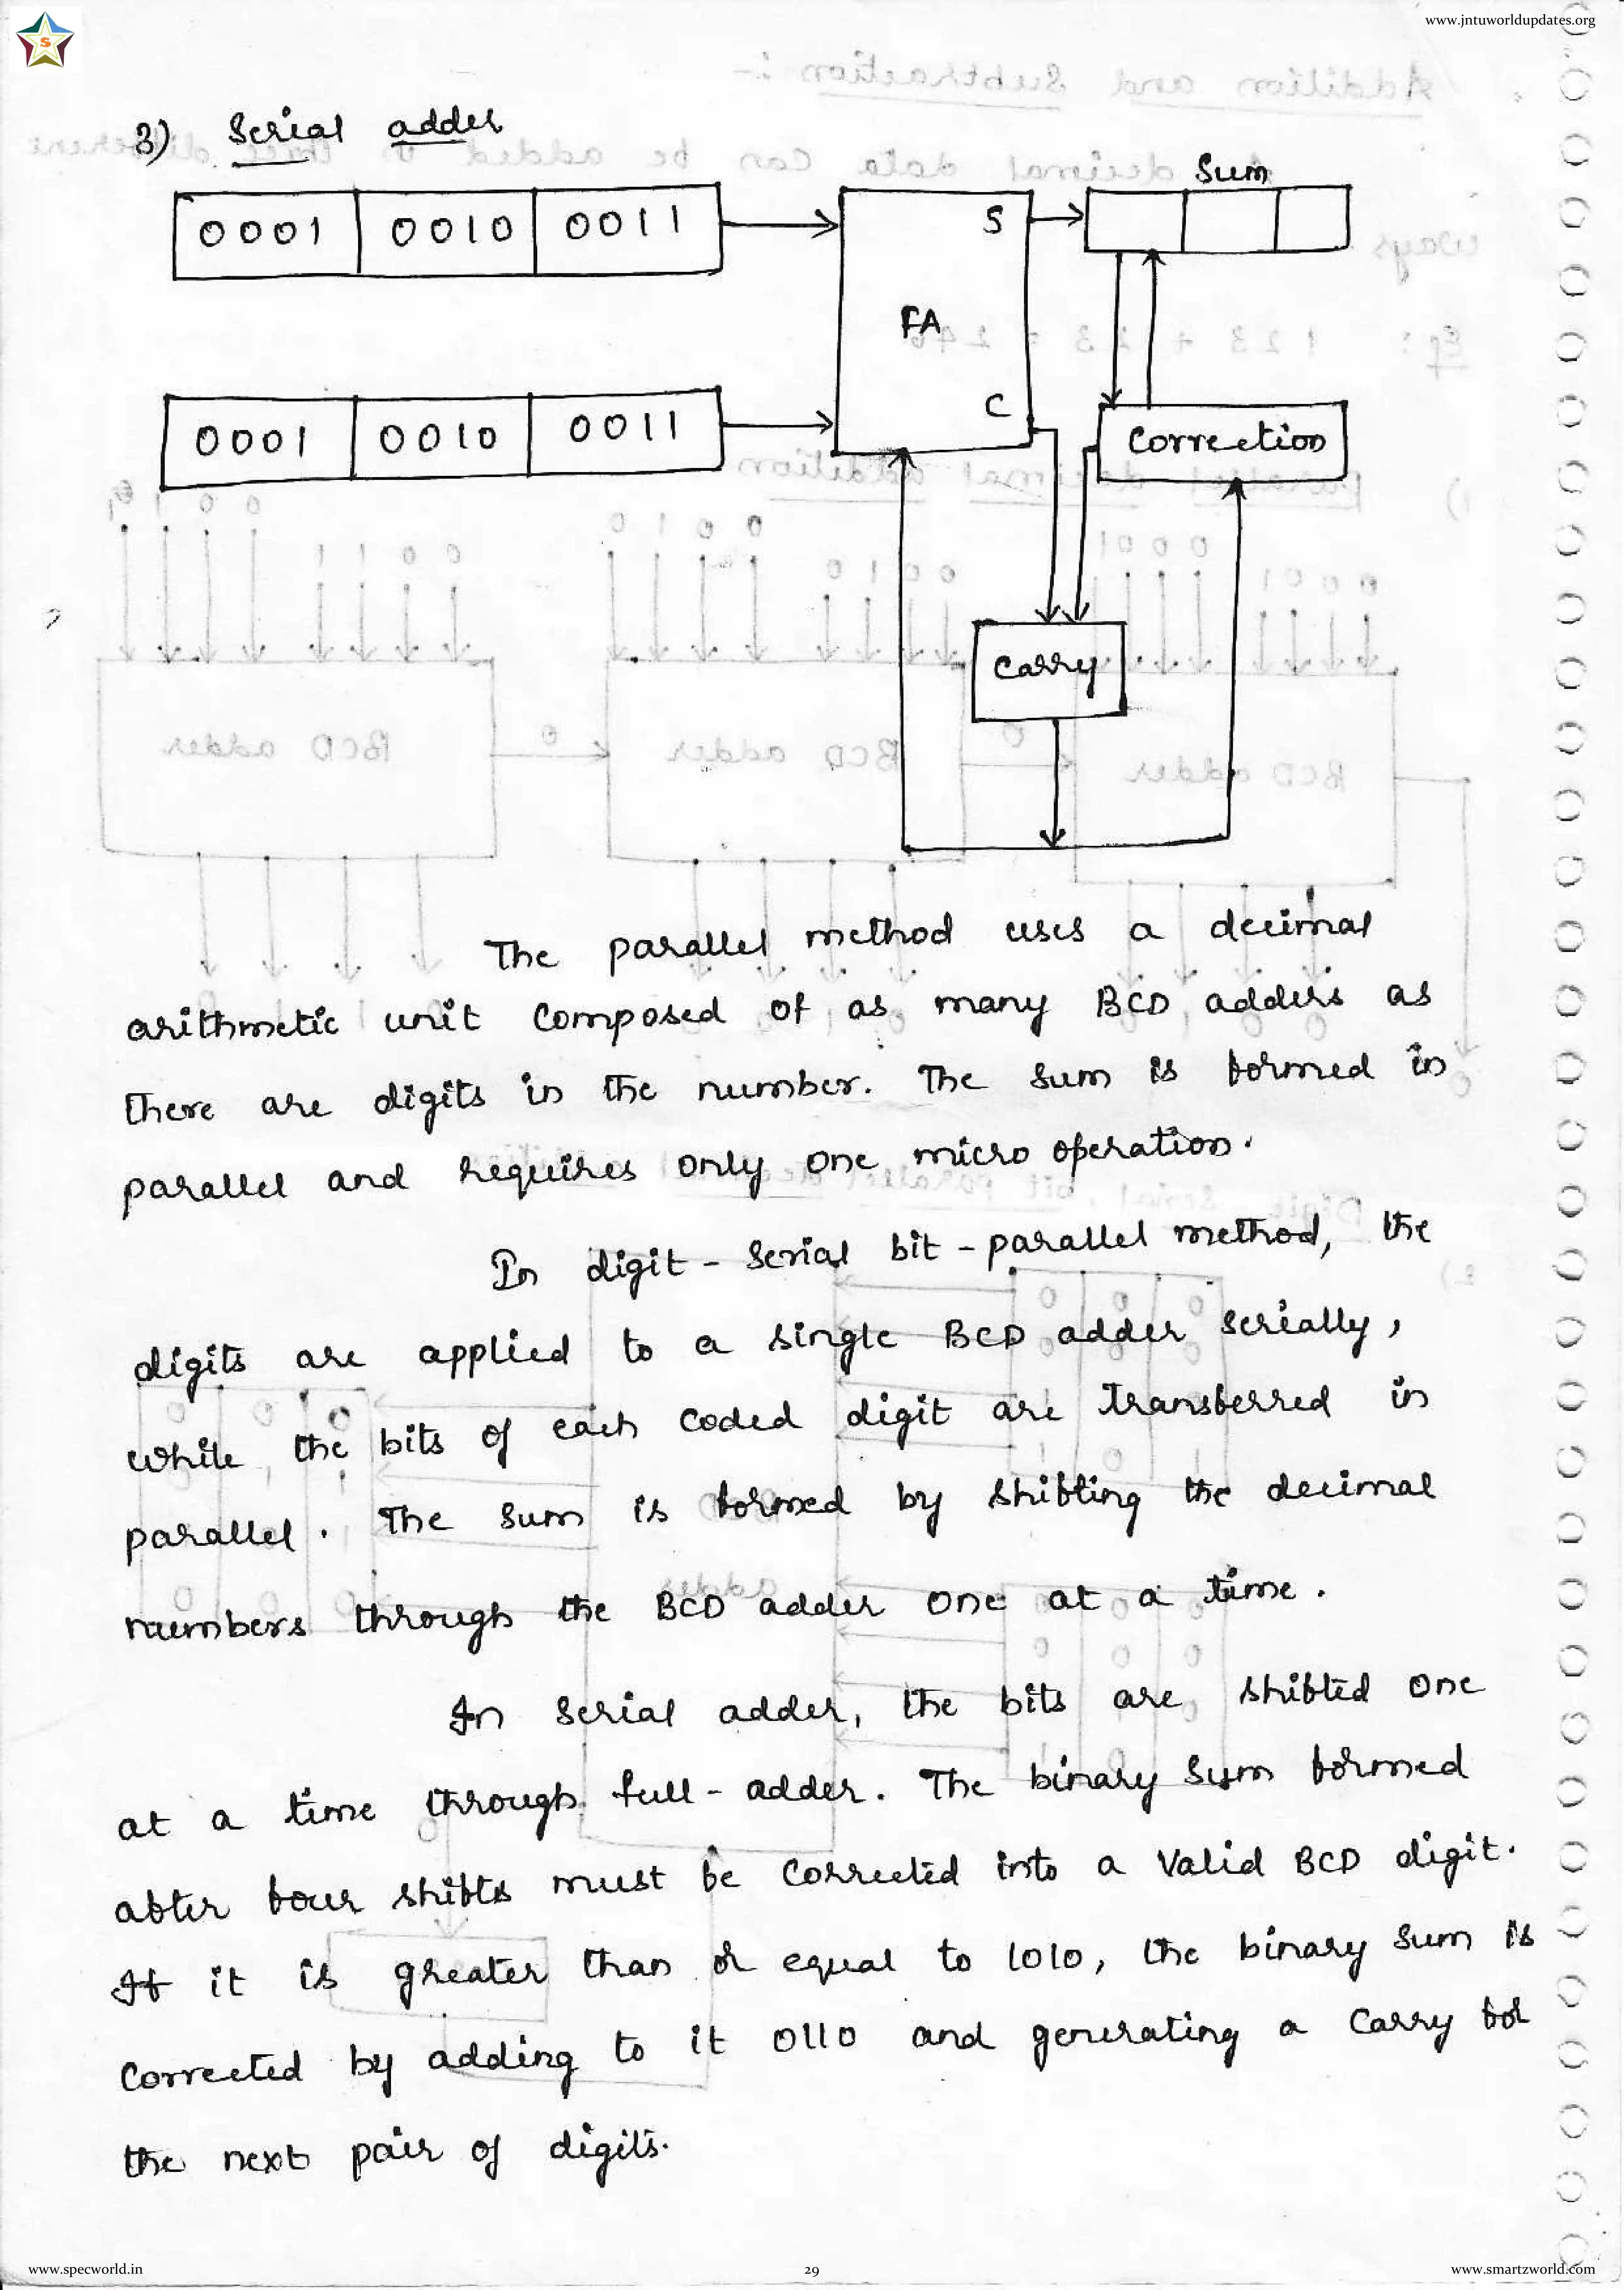 www.jntuworldupdates.org
S
3) Serial adder
Sum
0001 0010 0011
S
FA
0001 0010 0011
C
Correction
Carry
The parallel method uses a decimal
arithmetic unit composed of as many BCD adders as
there are digits in the number. The sum is formed in
parallel and requires only one micro operation.
In digit - serial bit - parallel method, the
digits are applied to a single BCD adder serially,
while the bits of each coded digit are transferred in
parallel. The sum is formed by shifting the decimal
numbers through the BCD adder one at a time.
In serial adder, the bits are shifted one
at a time through full - adder. The binary sum formed
after four shifts must be corrected into a valid BCD digit.
If it is greater than or equal to 1010, the binary sum is
corrected by adding to it 0110 and generating a carry for
the next pair of digits.
www.specworld.in
29
www.smartzworld.com